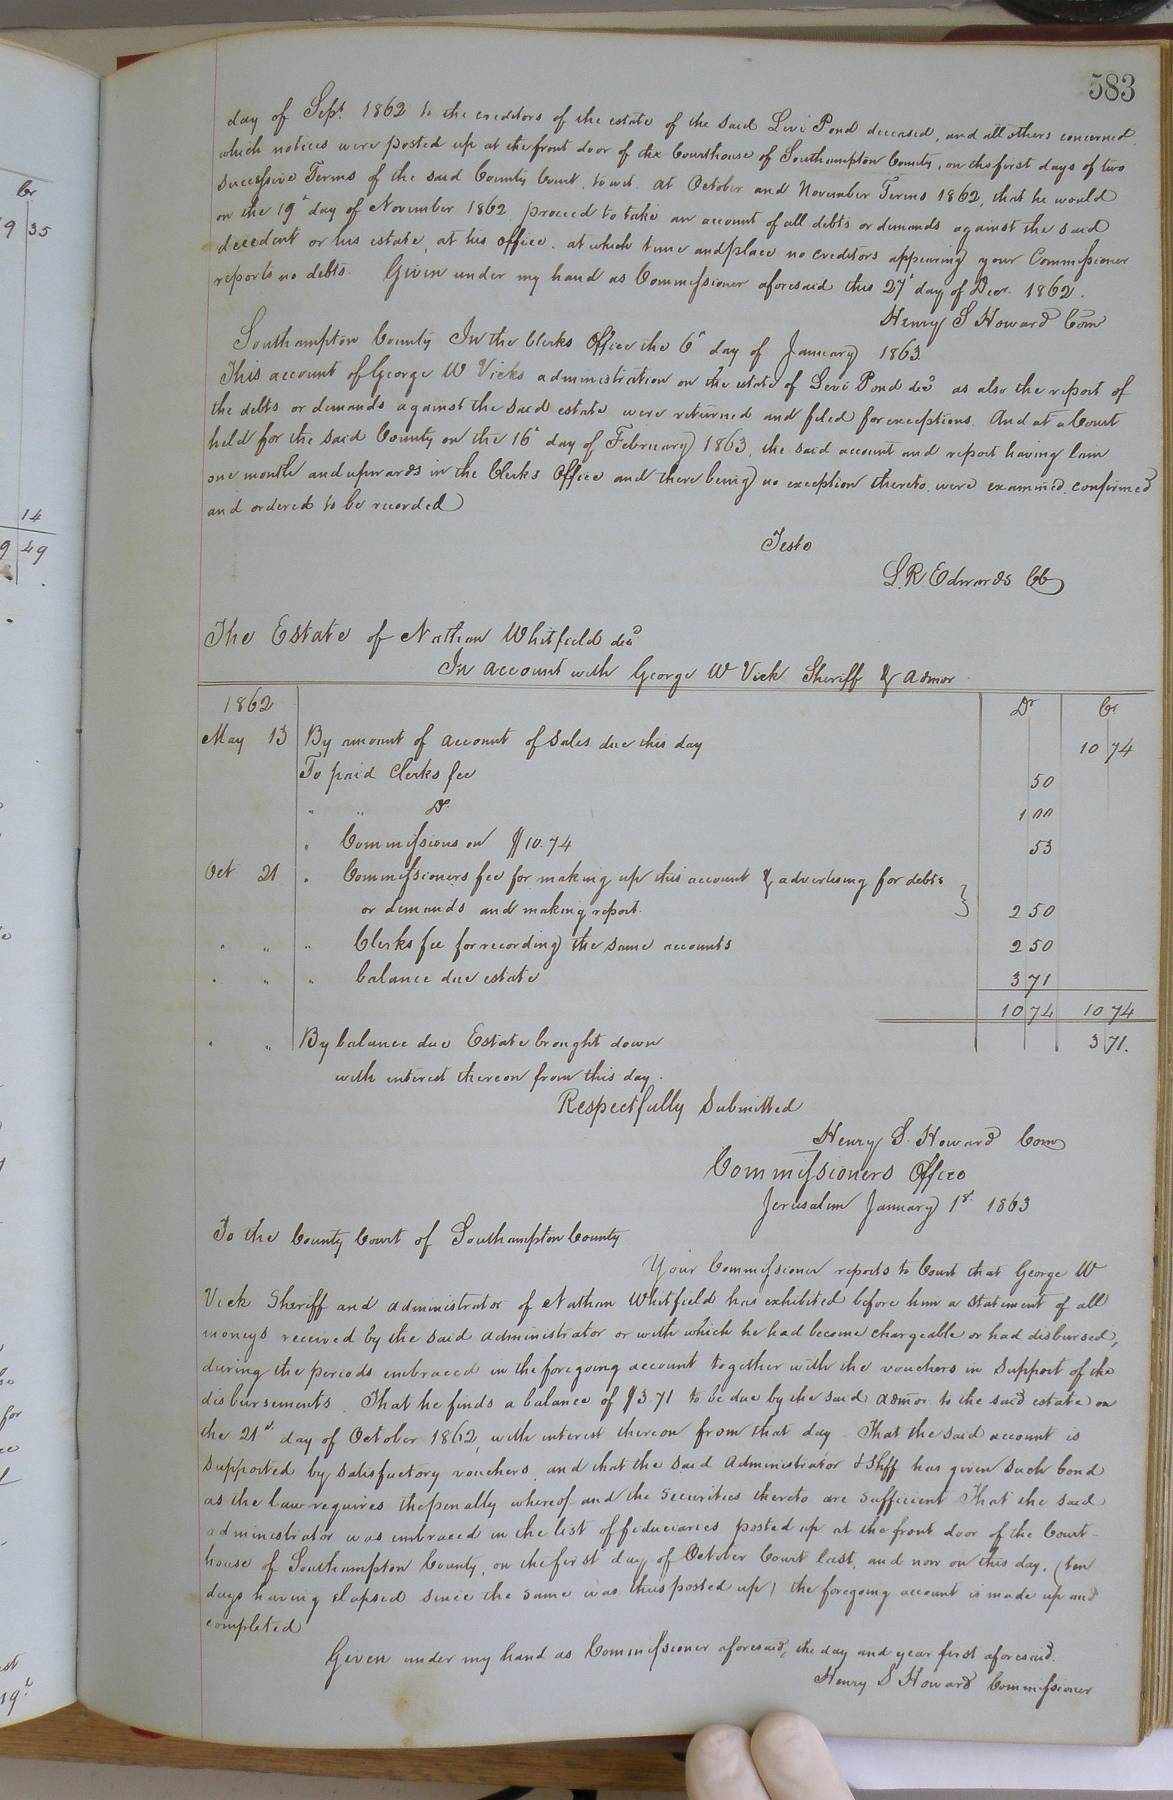 583
Cr
9 35
14
9 49
day of Sept. 1862 to the creditors of the estate of the said Levi Pond deceased, and all others concerned,
which notices were posted up at the front door of the Courthouse of Southampton County, on the first days of two
successive Terms of the said County Court, to wit. at October and November Terms 1862, that he would
on the 19th day of November 1862 proceed to take an account of all debts or demands against the said
decedent or his estate, at his office. at which time and place no creditors appearing your Commissioner
reports no debts. Given under my hand as Commissioner aforesaid this 27th day of Decr. 1862.
Henry S Howard Com
Southampton County In the Clerks Office the 6th day of January 1863.
This account of George W Vicks administration on the estate of Levi Pond decd as also the report of
the debts or demands against the said estate were returned and filed for exceptions. And at a Court
held for the said County on the 16th day of February 1863, the said account and report having lain
one month and upwards in the Clerks Office and there being no exception thereto, were examined, confirmed
and ordered to be recorded
Teste
L. R Edwards CC
The Estate of Nathan Whitfield decd
In account with George W Vick Sheriff & Admor
1862 Dr Cr
May 13 By amount of account of Sales due this day 10 74
To paid Clerks fee 50
" " Do 1 00
" Commissions on $10.74 53
Oct 21 " Commissioners fee for making up this account & advertising for debts
or demands and making report. } 2 50
" " " Clerks fee for recording the same accounts 2 50
" " " balance due estate 3 71
10 74 10 74
" " By balance due Estate brought down 3 71.
with interest thereon from this day.
Respectfully Submitted
Henry S. Howard Com
Commissioners Office
Jerusalem January 1st 1863
To the County Court of Southampton County
Your Commissioner reports to Court that George W
Vick Sheriff and administrator of Nathan Whitfield has exhibited before him a statement of all
moneys received by the said administrator or with which he had become chargeable or had disbursed,
during the periods embraced in the foregoing account together with the vouchers in support of the
disbursements. That he finds a balance of $3 71 to be due by the said admor to the said estate on
the 21st day of October 1862, with interest thereon from that day That the said account is
supported by satisfactory vouchers, and that the said Administrator & Shff has given such bond
as the law requires the penalty whereof and the securities thereto are sufficient That the said
administrator was embraced in the list of fiduciaries posted up at the front door of the Court-
house of Southampton County, on the first day of October Court last, and now on this day, (ten
days having elapsed since the same was thus posted up) the foregoing account is made up and
completed
Given under my hand as Commissioner aforesaid, the day and year first aforesaid.
Henry S Howard Commissioner